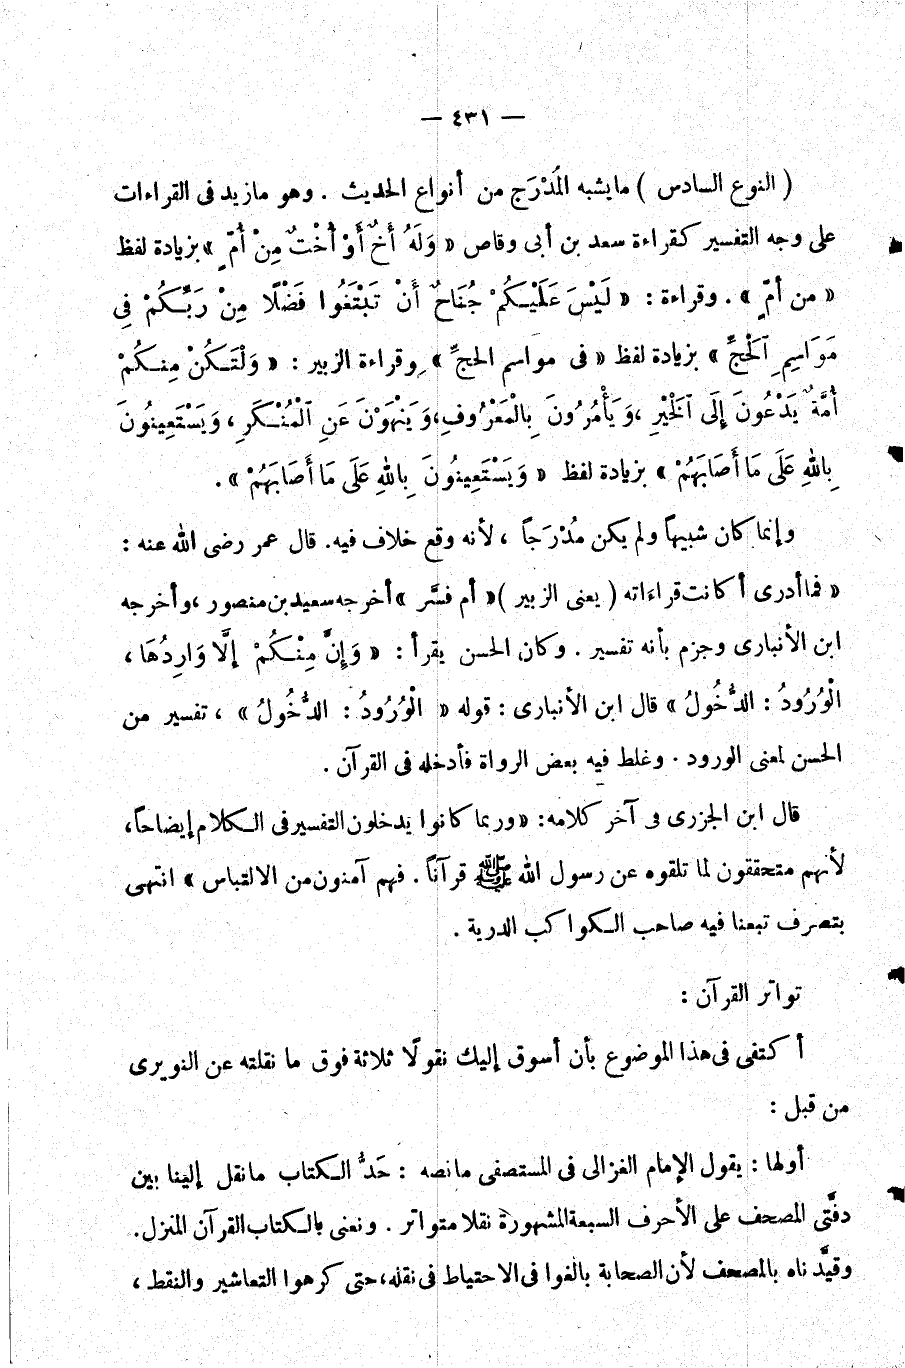 — ٤٣١ —
( النوع السادس ) مايشبه المُدْرَج من أنواع الحديث . وهو مازيد فى القراءات
على وجه التفسير كقراءة سعد بن أبى وقاص « وَلَهُ أَخٌ أَوْ أُخْتٌ مِنْ أُمّ ٍ» بزيادة لفظ
« من أمّ ٍ» . وقراءة : « لَيْسَ عَلَيْكُمْ جُنَاحٌ أَنْ تَبْتَغُوا فَضْلًا مِنْ رَبِّكُمْ فِى
مَوَاسِمِ ٱلْحَجِّ » بزيادة لفظ « فى مواسم الحجِّ » وقراءة الزبير : « وَلْتَكُنْ مِنكُمْ
أُمَّةٌ يَدْعُونَ إِلَى ٱلْخَيْرِ ، وَيَأْمُرُونَ بِالْمَعْرُوفِ، وَيَنْهَوْنَ عَنِ ٱلْمُنْكَرِ ، وَيَسْتَعِينُونَ
بِاللهِ عَلَى مَا أَصَابَهُمْ » بزيادة لفظ « وَيَسْتَعِينُونَ بِاللهِ عَلَى مَا أَصَابَهُمْ » .
وإنما كان شبيهاً ولم يكن مُدْرَجاً ، لأنه وقع خلاف فيه. قال عمر رضى الله عنه :
« فما أدرى أكانت قراءاته ( يعنى الزبير ) « أم فسَّر » أخرجه سعيد بن منصور ، وأخرجه
ابن الأنبارى وجزم بأنه تفسير . وكان الحسن يقرأ : « وَإِنَّ مِنْكُمْ إِلَّا وَارِدُهَا ،
الْوُرُودُ : الدُّخُولُ » قال ابن الأنبارى : قوله « الْوُرُودُ : الدُّخُولُ » ، تفسير من
الحسن لمعنى الورود . وغلط فيه بعض الرواة فأدخله فى القرآن .
قال ابن الجزرى فى آخر كلامه : « وربما كانوا يدخلون التفسير فى الكلام إيضاحاً،
لأنهم متحققون لما تلقوه عن رسول الله ﷺ قرآناً . فهم آمنون من الالتباس » انتهى
بتصرف تبعنا فيه صاحب الكواكب الدرية .
تواتر القرآن :
أكتفى فى هذا الموضوع بأن أسوق إليك نقولًا ثلاثة فوق ما نقلته عن النويرى
من قبل :
أولها : يقول الإمام الغزالى فى المستصفى مانصه : حَدُّ الكتاب مانقل إلينا بين
دفَّتى المصحف على الأحرف السبعة المشهورة نقلا متواتر . ونعنى بالكتاب القرآن المنزل .
وقيَّدناه بالمصحف لأن الصحابة بالغوا فى الاحتياط فى نقله، حتى كرهوا التعاشير والنقط ،